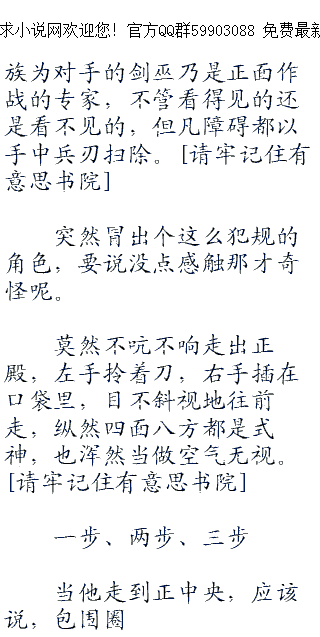 求小说网欢迎您! 官方QQ群59903088 免费最新
族为对手的剑巫乃是正面作
战的专家，不管看得见的还
是看不见的，但凡障碍都以
手中兵刃扫除。[请牢记住有
意思书院]
突然冒出个这么犯规的
角色，要说没点感触那才奇
怪呢。
莫然不吭不响走出正
殿，左手拎着刀，右手插在
口袋里，目不斜视地往前
走，纵然四面八方都是式
神，也浑然当做空气无视。
[请牢记住有意思书院]
一步、两步、三步
当他走到正中央，应该
说，包围圈